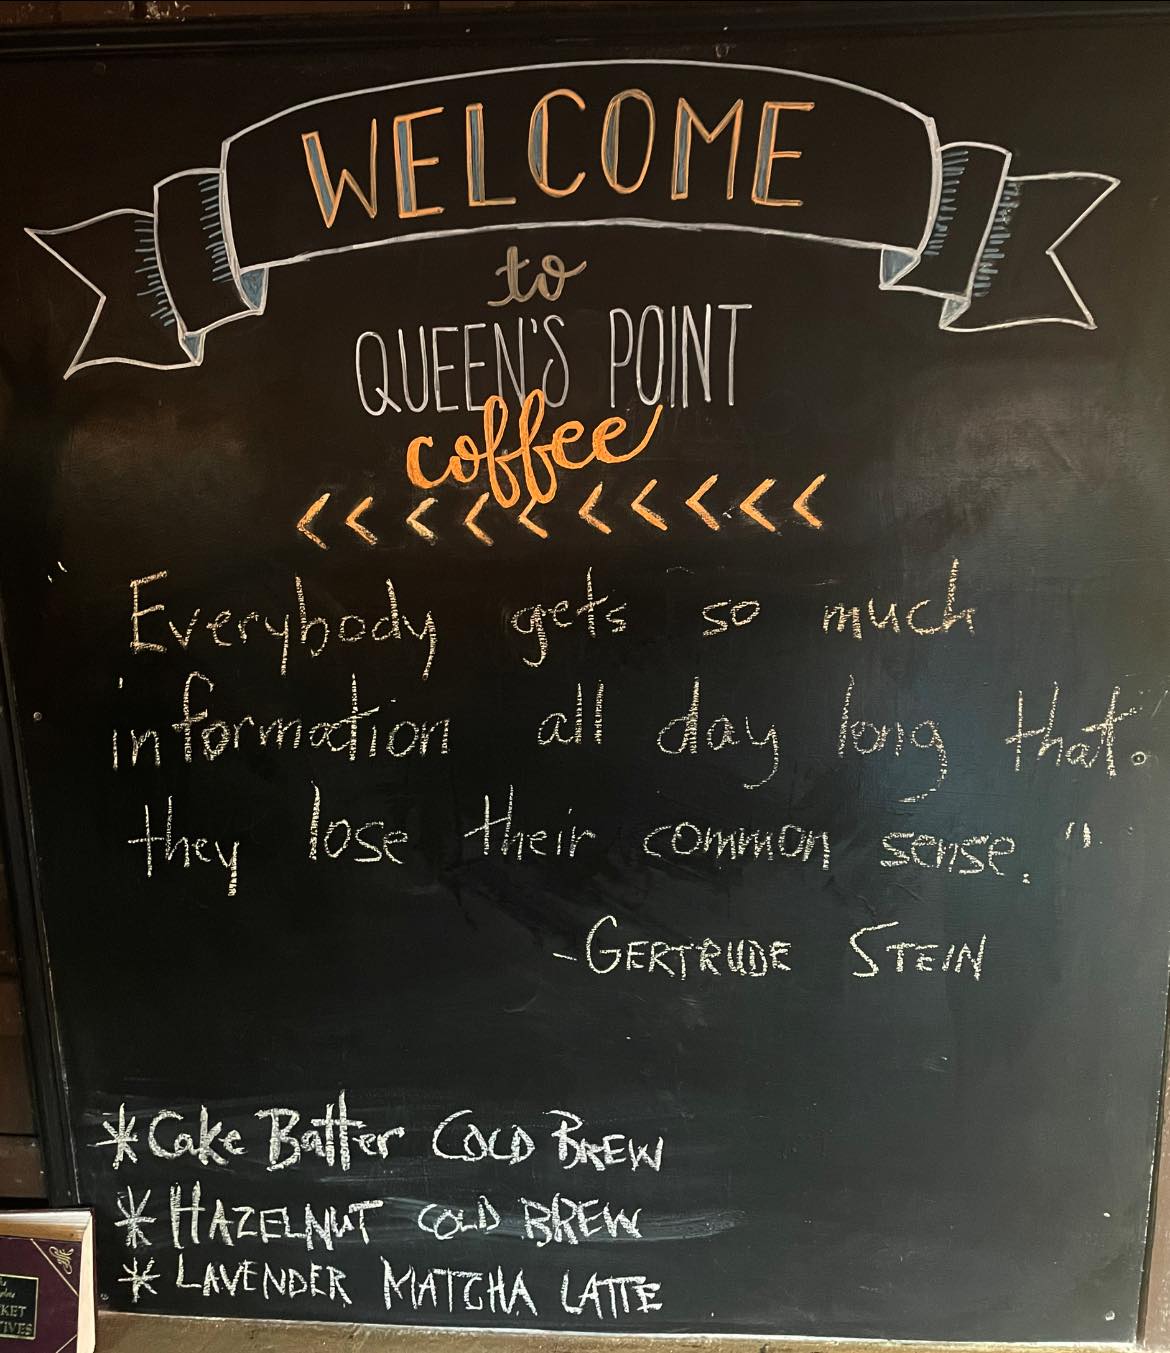 WELCOME
to
QUEEN'S POINT
coffee
<<<<<<<<<<
"Everybody gets so much
information all day long that
they lose their common sense."
-GERTRUDE STEIN
*Cake Batter COLD BREW
*HAZELNUT COLD BREW
*LAVENDER MATCHA LATTE